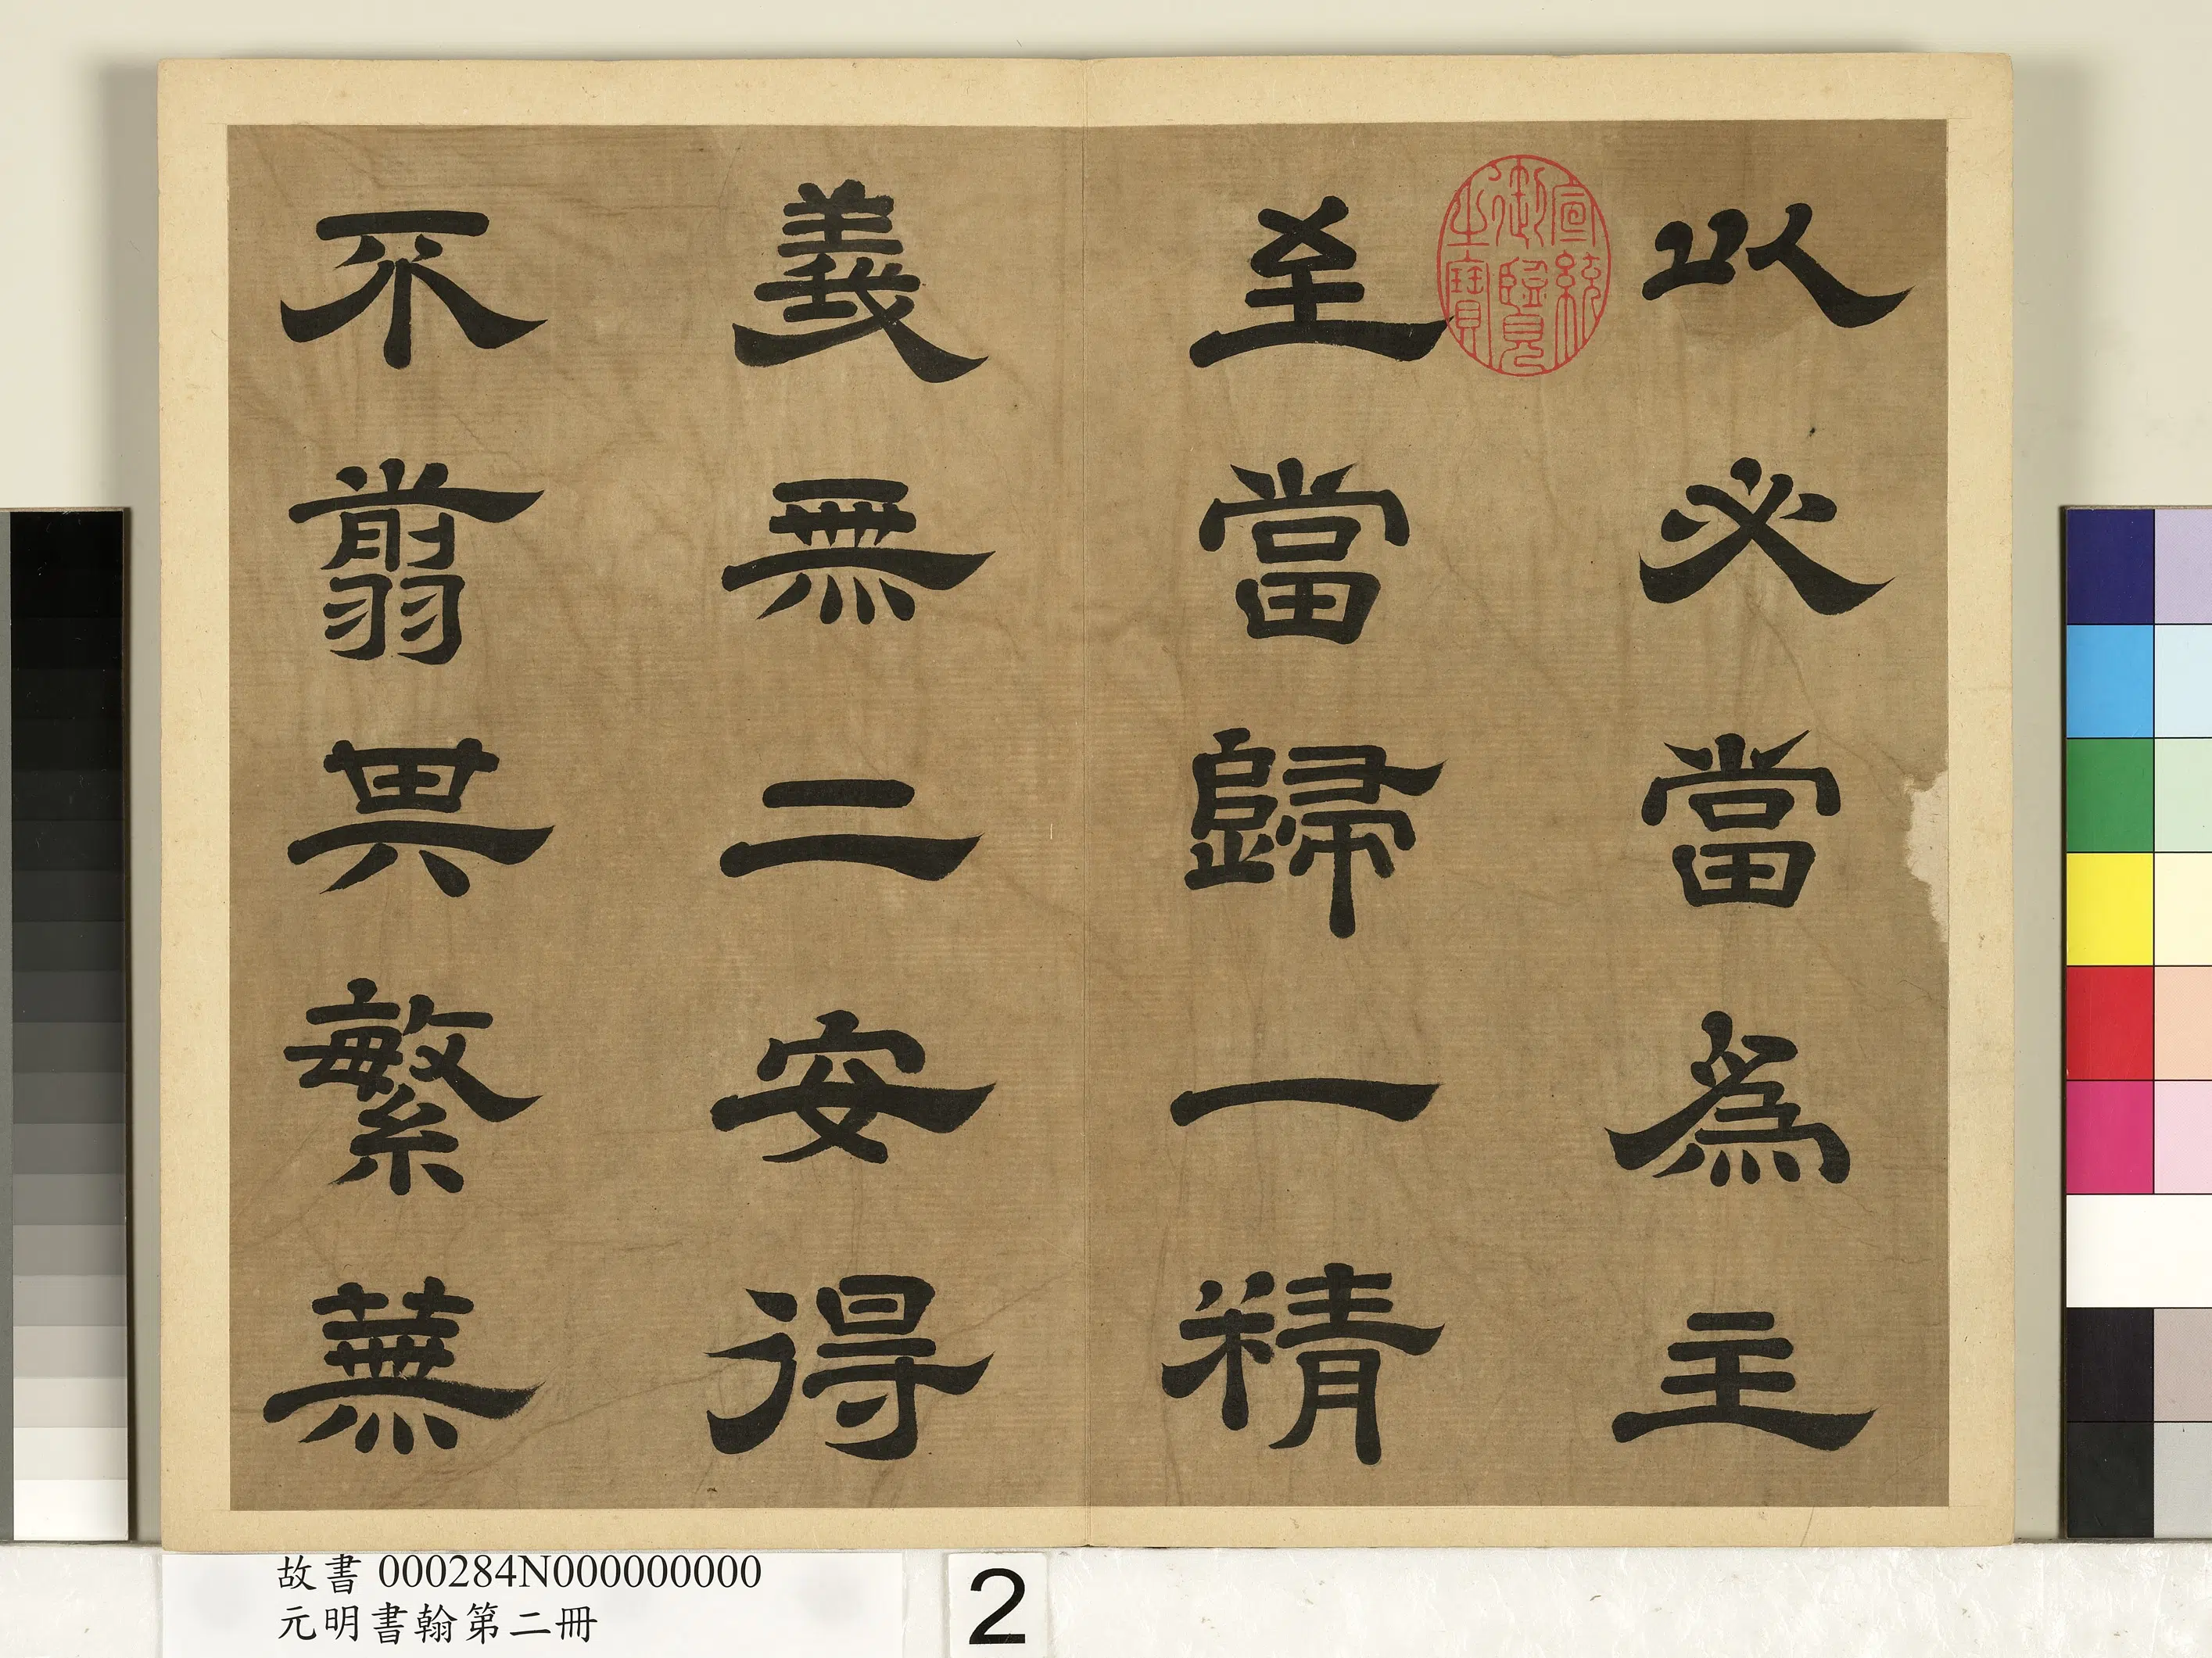 以必當為主
至當歸一精
義無二安得
不翦其繁蕪
宣統御覽之寶
故書 000284N000000000
元明書翰第二冊
2